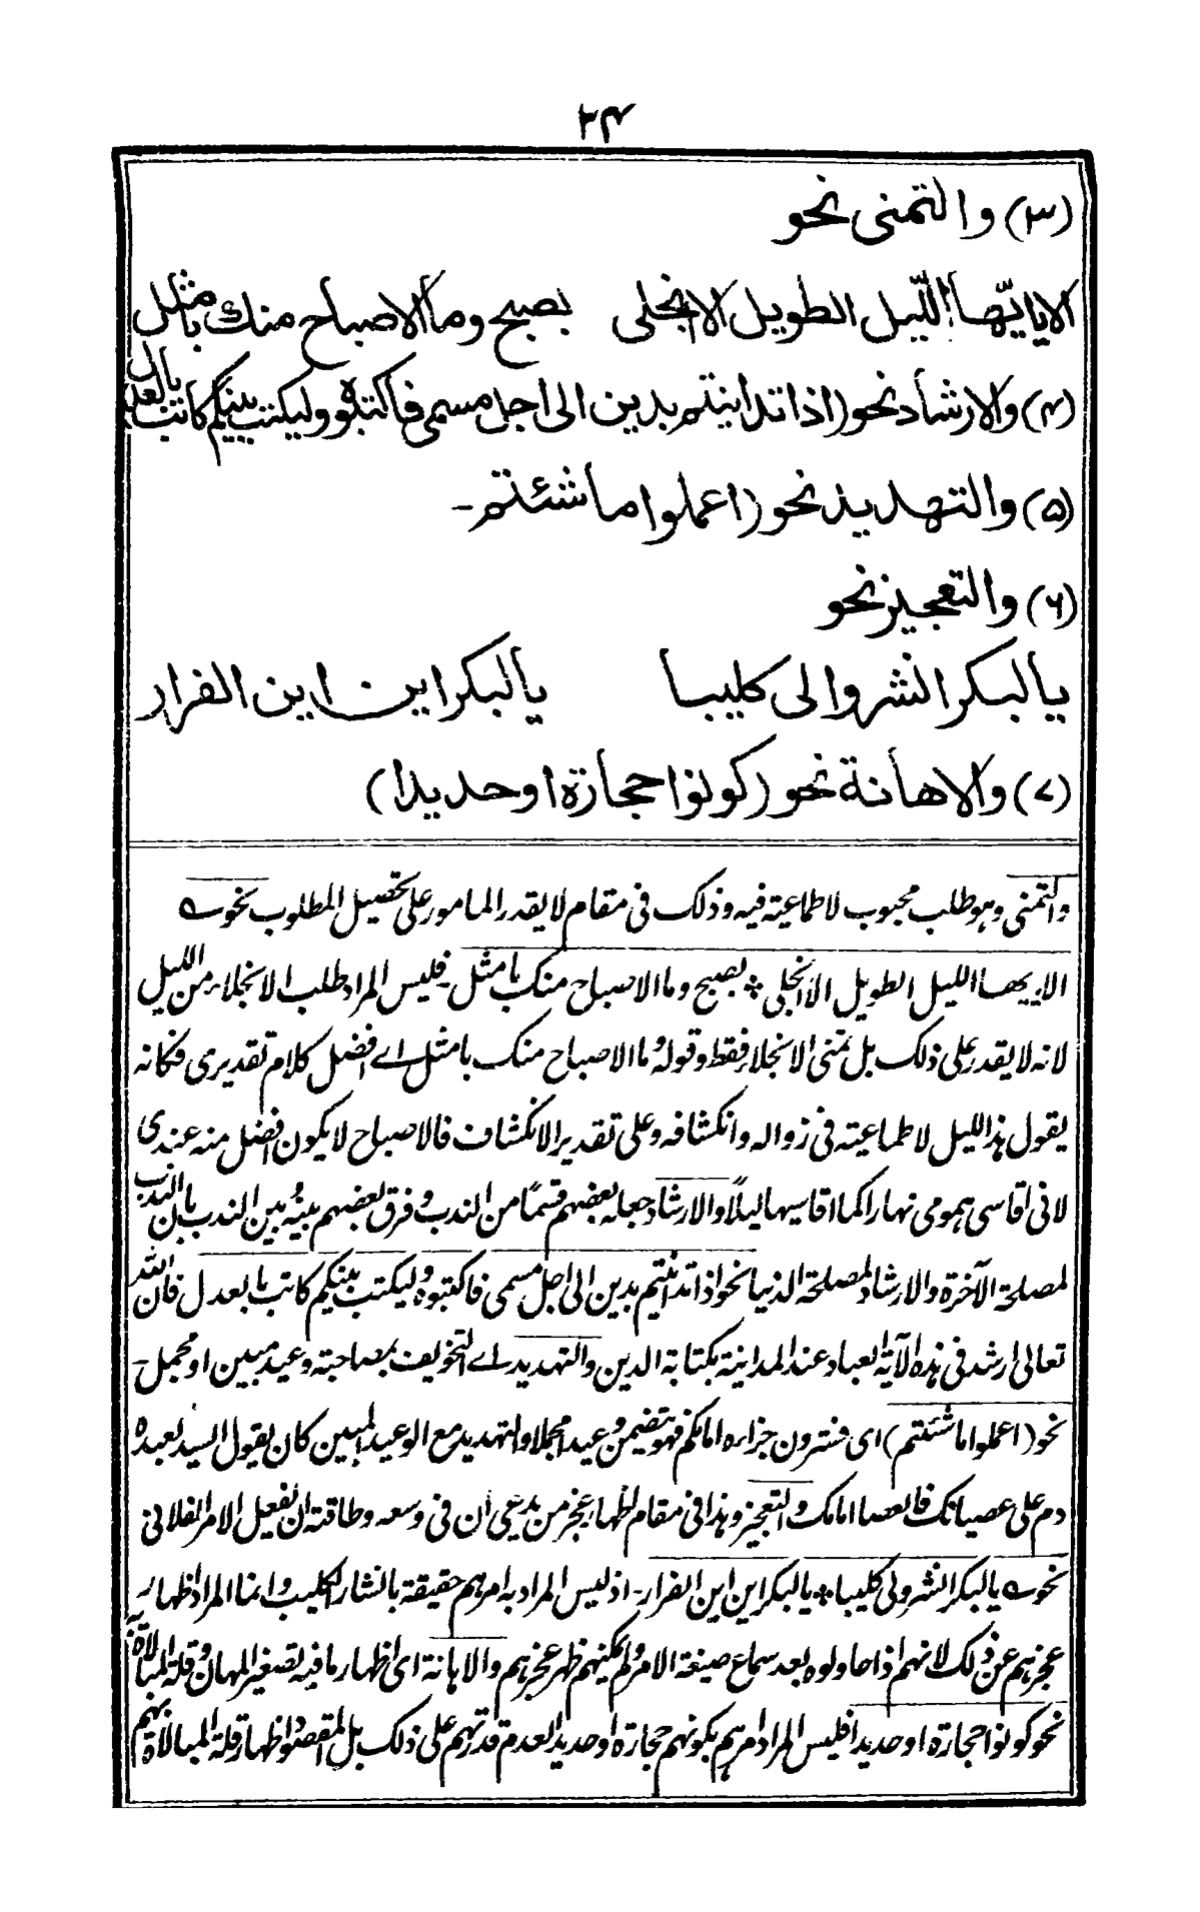 ٣٤
(٣) والتمنى نحو
الا يا ايّها اللّيل الطويل الا انجلى بصبح وما الاصباح منك بامثل
(٤) والارشاد نحو (اذا تداينتم بدين الى اجل مسمى فاكتبوه وليكتب بينكم كاتب بالعدل
(٥) والتهديد نحو (اعملوا ما شئتم -
(٦) والتعجيز نحو
يا لبكر انشروا لى كليبا يا لبكر اين اين الفرار
(٧) والاهانة نحو (كونوا حجارة او حديدا)
والتمنى وهو طلب محبوب لا طماعية فيه وذلك فى مقام لا يقدر المامور على تحصيل المطلوب نحو ؎
الا ايها الليل الطويل الا انجلى ٭ بصبح وما الاصباح منك بامثل - فليس المراد طلب الانجلاء من الليل
لانه لا يقدر على ذلك بل تمنى الانجلاء فقط وقوله وما الاصباح منك بامثل اے افضل كلام تقديرى فكانه
يقول هذا الليل لا طماعية فى زواله وانكشافه وعلى تقدير الانكشاف فالاصباح لا يكون افضل منه عندى
لانى اقاسى همومى نهارا كما اقاسيها ليلاً والارشاد جعله بعضهم قسمًا من الندب وفرق بعضهم بينه وبين الندب بان الندب
لمصلحة الآخرة والارشاد لمصلحة الدنيا نحو اذا تداينتم بدين الى اجل مسمى فاكتبوه وليكتب بينكم كاتب بالعدل فان الله
تعالى ارشد فى هذه الآية لعباد عند المداينة بكتابة الدين والتهديد اے التخويف بمصاحبة وعيد مبين او مجمل -
نحو (اعملوا ما شئتم) اى فسترون جزاءه امامكم فهو يتضمن وعيدا مجملا والتهديد مع الوعيد المبين كان يقول السيد لعبده
دم على عصيانك فالعصا امامك والتعجيز وهذا فى مقام اظهار عجز من يدعى ان فى وسعه وطاقته ان يفعل الامر الفلانى
نحو ؎ يا لبكر انشروا لى كليبا ٭ يا لبكر اين اين الفرار - اذ ليس المراد به امرهم حقيقة بانشار كليب وانما المراد اظهار
عجزهم عن ذلك لانهم اذا حاولوه بعد سماع صيغة الامر ولم يمكنهم ظهر عجزهم والاهانة اى اظهار ما فيه تصغير المهان وقلة المبالاة به
نحو كونوا حجارة او حديدا فليس المراد امرهم بكونهم حجارة او حديدا لعدم قدرتهم على ذلك بل المقصود اظهار قلة المبالاة بهم